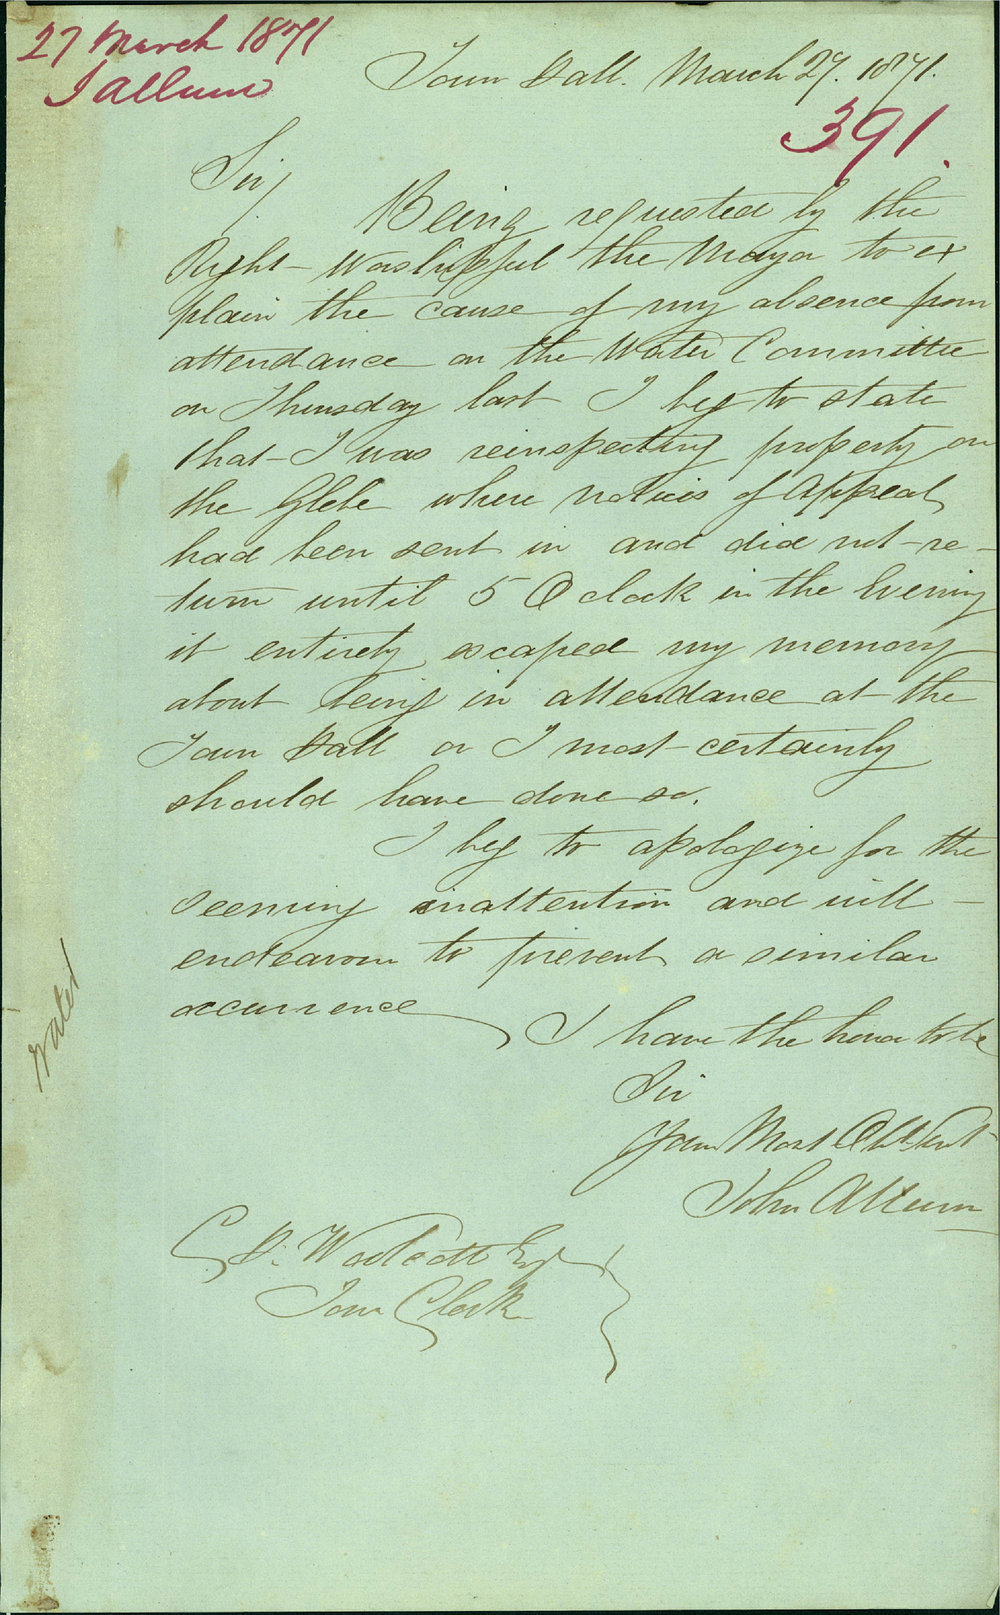 27 March 1871
J Allum
Town Hall. March 27. 1871.
391.
Sir/
Being requested by the
Right Worshipful the Mayor to ex
plain the cause of my absence from
attendance on the Water Committee
on Thursday last I beg to state
that I was reinspecting property on
the Glebe where notices of Appeal
had been sent in and did not re-
turn until 5 O clock in the Evening
it entirely escaped my memory
about being in attendance at the
Town Hall or I most certainly
should have done so.
I beg to apologize for the
seeming inattention and will
endeavour to prevent a similar
occurrence
I have the honor to be
Sir
Your Most Obt Servt
John Allum
Water
C. H. Woolcott Esq
Town Clerk